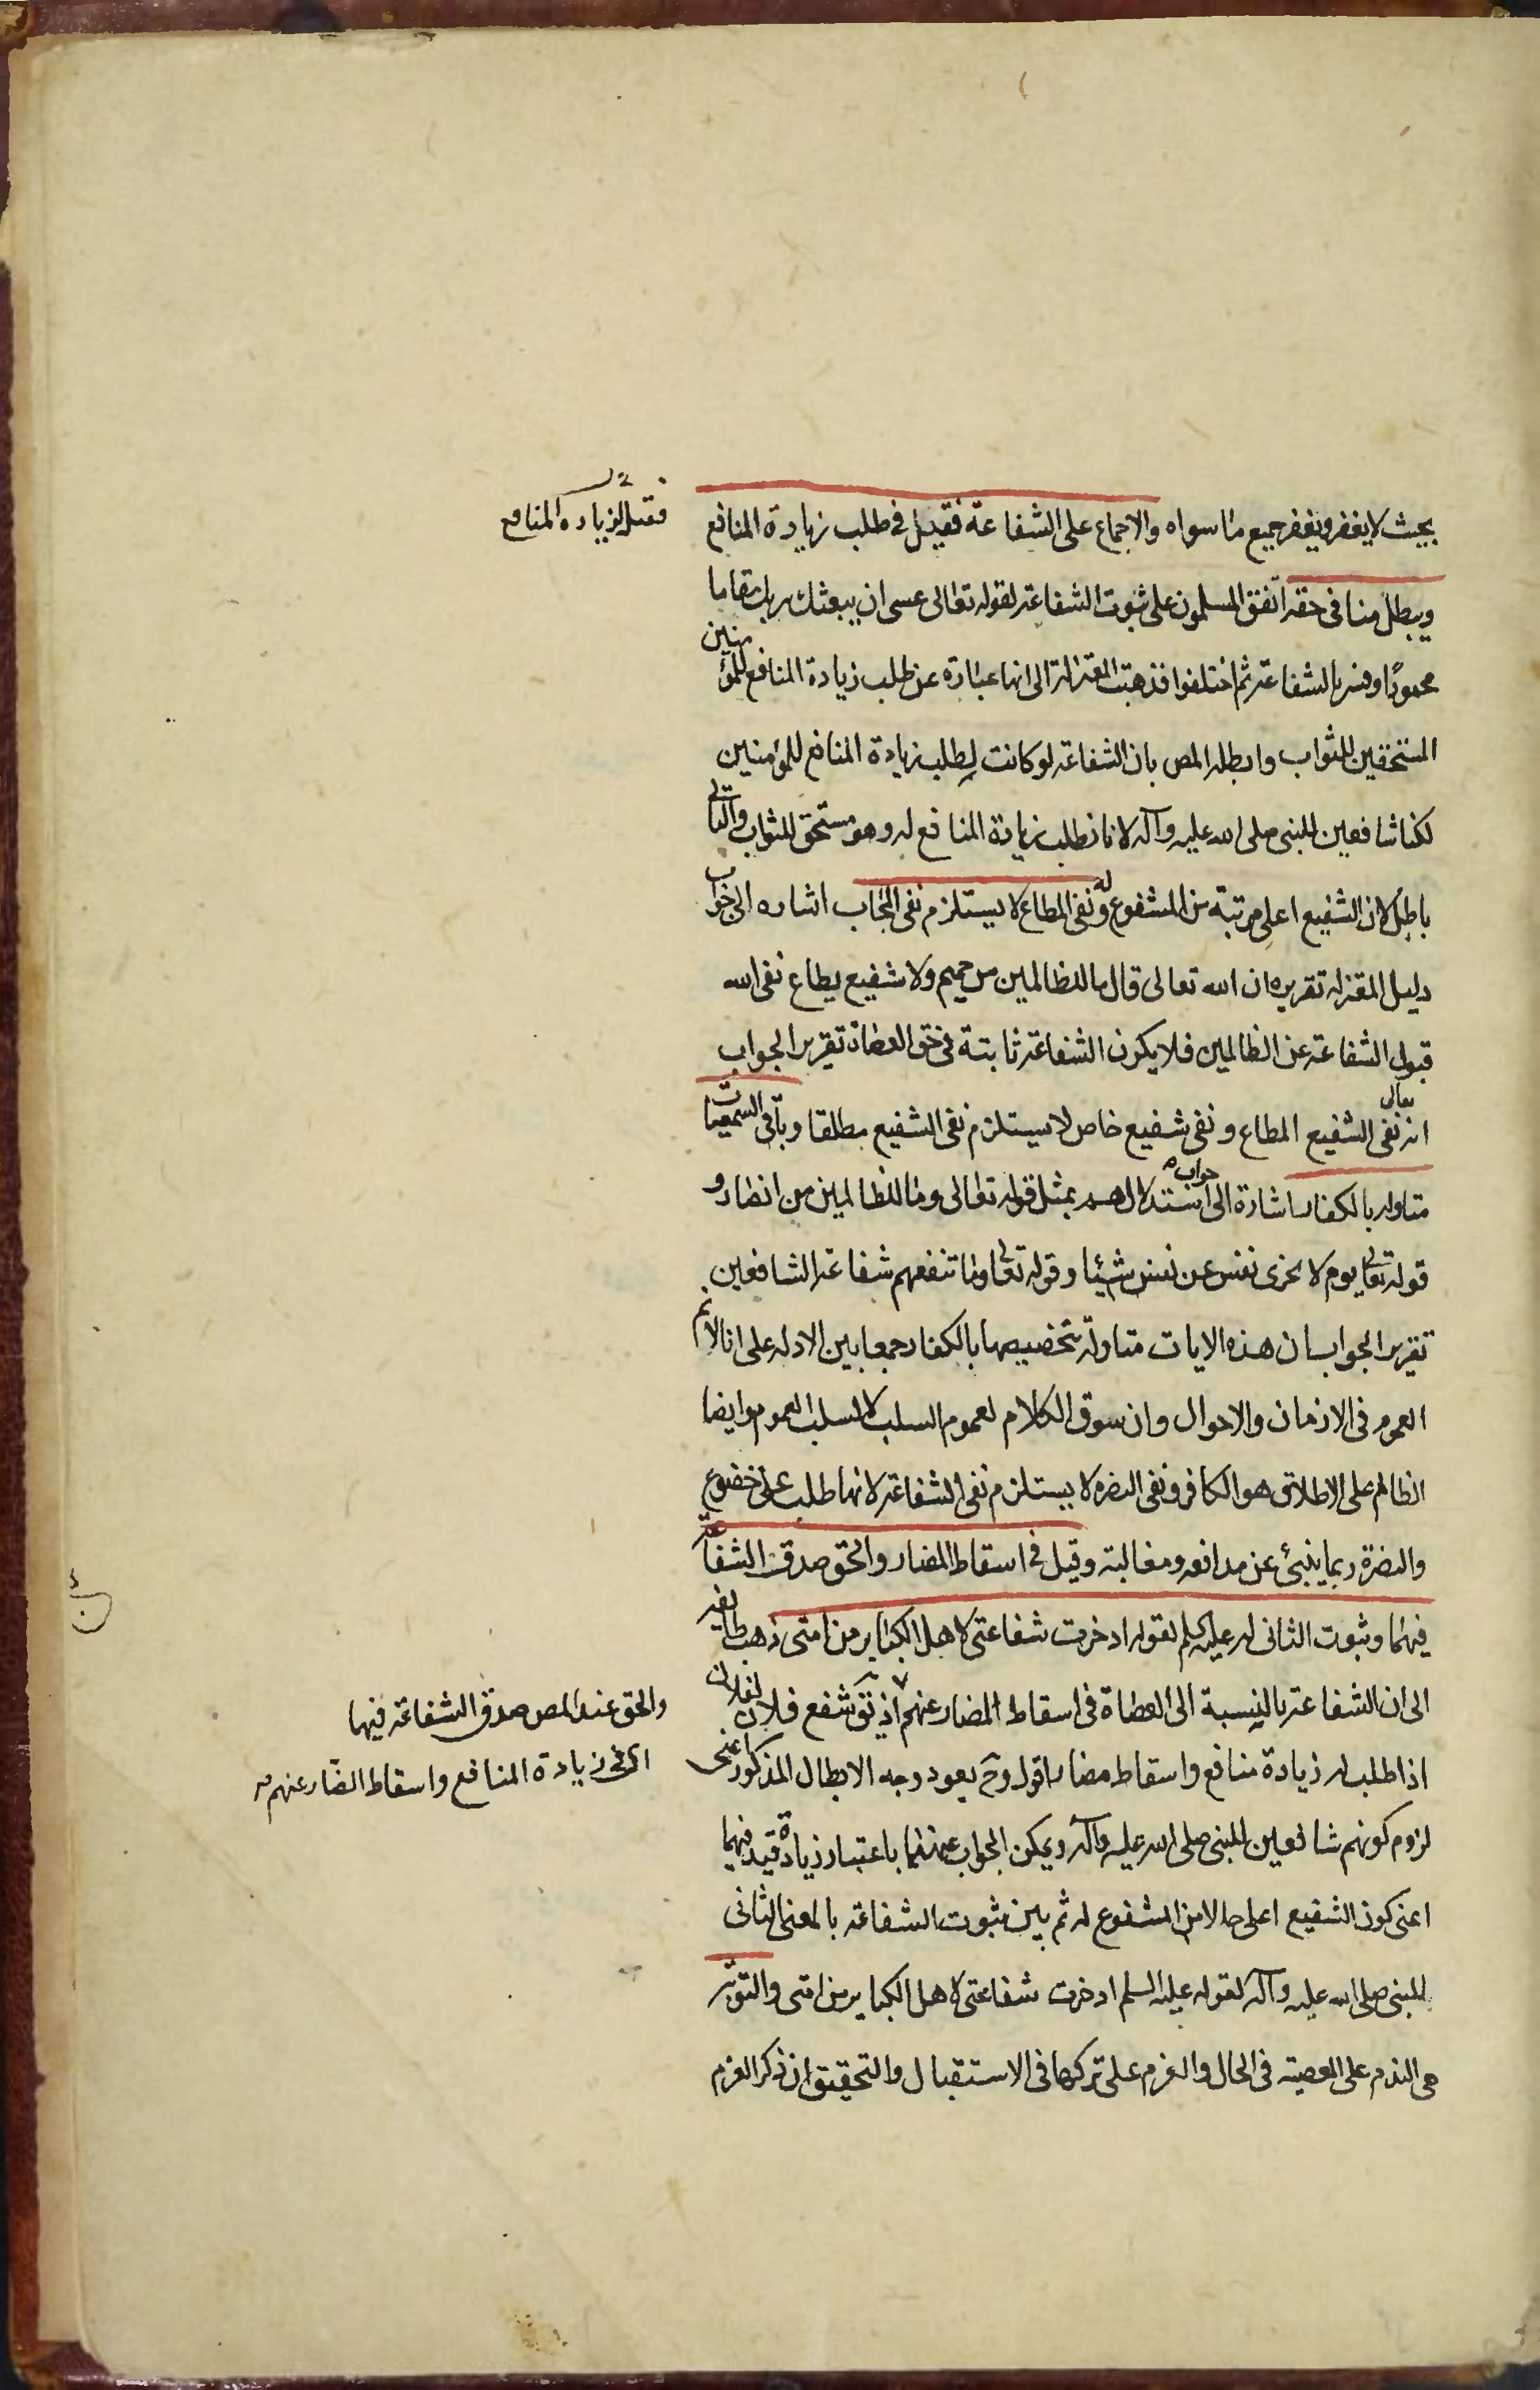 بحيث لا يغفر ويغفر جميع ما سواه والاجماع على الشفاعة فقيل في طلب زيادة المنافع
فقيل لزيادة المنافع
ويبطل منا في حقه اتفق المسلمون على ثبوت الشفاعة لقوله تعالى عسى ان يبعثك ربك مقاما
محمودا وفسر بالشفاعة ثم اختلفوا فذهبت المعتزلة الى انها عبارة عن طلب زيادة المنافع للمؤمنين
المستحقين للثواب وابطله المص بان الشفاعة لو كانت لطلب زيادة المنافع للمؤمنين
لكنا شافعين للنبي صلى الله عليه وآله لانا نطلب زيادة المنافع له وهو مستحق للثواب والتالي
باطل لان الشفيع اعلى مرتبة من المشفوع له ونفى المطاع لا يستلزم نفى المجاب اشاره الى جواب
دليل المعتزلة تقريره ان الله تعالى قال ما للظالمين من حميم ولا شفيع يطاع نفى الله
قبول الشفاعة عن الظالمين فلا يكون الشفاعة ثابتة في حق العصاة تقرير الجواب
انه تعالى نفى الشفيع المطاع ونفى شفيع خاص لا يستلزم نفى الشفيع مطلقا وباقى السمعيات
متاوله بالكفار اشارة الى جواب استدلالهم بمثل قوله تعالى وما للظالمين من انصار و
قوله تعالى يوم لا تجزى نفس عن نفس شيئا وقوله تعالى وما تنفعهم شفاعة الشافعين
تقرير الجواب ان هذه الايات متاولة بتخصيصها بالكفار جمعا بين الادله على انا لانم
العموم في الازمان والاحوال وان سوق الكلام لعموم السلب لا لسلب العموم وايضا
الظالم على الاطلاق هو الكافر ونفى النصره لا يستلزم نفى الشفاعة لانها طلب على خضوع
والنصرة ربما ينبئ عن مدافعه ومغالبة وقيل في اسقاط المضار والحق صدق الشفاعة
فيهما وثبوت الثانى له عليه السلم لقوله ادخرت شفاعتى لاهل الكباير من امتى ذهب طايفه
الى ان الشفاعة بالنسبة الى العصاة في اسقاط المضار عنهم اذ يق شفع فلان لفلان
والحق عند المص صدق الشفاعة فيهما
اى في زيادة المنافع واسقاط المضار عنهم
اذا طلب له زيادة منافع واسقاط مضار اقول وح يعود وجه الابطال المذكور اعنى
لزوم كونهم شافعين للنبي صلى الله عليه وآله ويمكن الجواب عنهما باعتبار زيادة قيد فيهما
اعنى كون الشفيع اعلى حالا من المشفوع له ثم بين ثبوت الشفاعة بالمعنى الثانى
للنبي صلى الله عليه وآله لقوله عليه السلم ادخرت شفاعتى لاهل الكباير من امتى والتوبة
هى الندم على المعصية فى الحال والعزم على تركها فى الاستقبال والتحقيق ان ذكر العزم